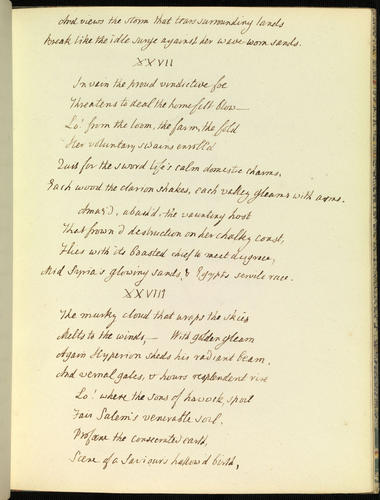 And views the storm that tears surrounding lands
Break like the idle surge against her wave worn sands.
XXVII
In vain the proud vindictive foe
Threatens to deal the home felt blow—
Lo! from the loom, the farm, the fold
Her voluntary swains enroll'd
Quit for the sword life's calm domestic charms,
Each wood the clarion shakes, each valley gleams with arms.
Amaz'd, abash'd the vaunting host
That frown'd destruction on her chalky coast,
Flies with its boasted chief to meet disgrace,
Mid Syria's glowing sands & Egypts servile race.
XXVIII
The murky cloud that wraps the skies
Melts to the winds,— With golden gleam
Again Hyperion sheds his radiant beam,
And vernal gales, & hours resplendent rise
Lo! where the sons of havock spoil
Fair Salem's venerable soil,
Profane the consecrated earth,
Scene of a Saviours hallow'd birth,